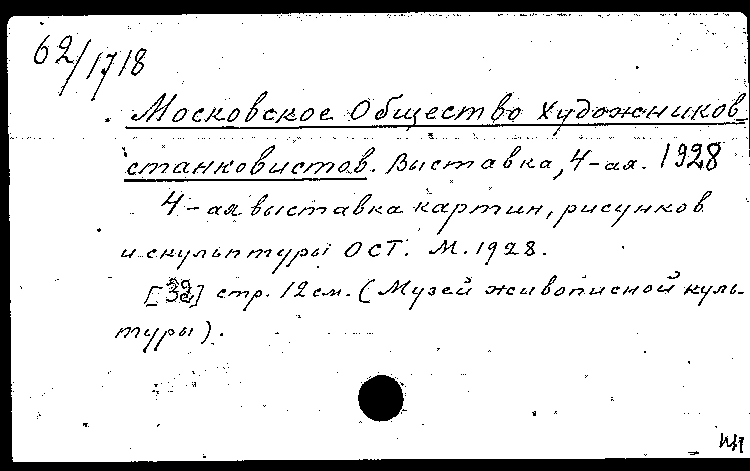 62/1718
Московское Общество Художников-
станковистов. Выставка, 4-ая. 1928
4-ая выставка картин, рисунков
и скульптуры ОСТ. М. 1928.
[32] стр. 12 см. (Музей живописной куль-
туры).